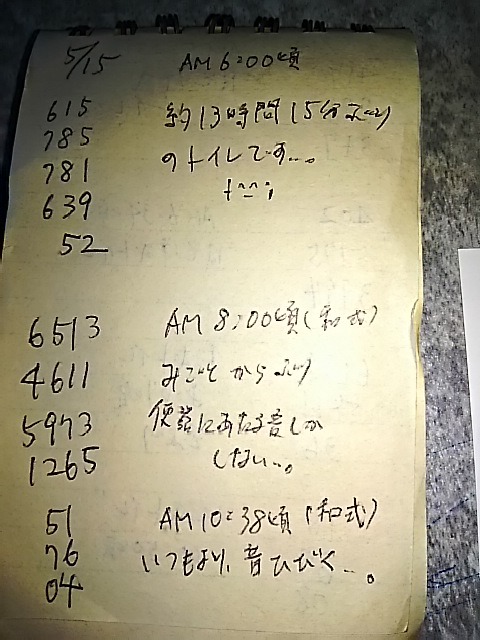 5/15 AM 6:00頃
615 約13時間15分ぶり
785 のトイレです…。
781 +^^;
639
52
6513 AM 8:00頃(和式)
4611 みごとからぶり
5973 便器にあたる音しか
1265 しない…。
51 AM 10:38頃(和式)
76 いつもより、音ひびく…。
04